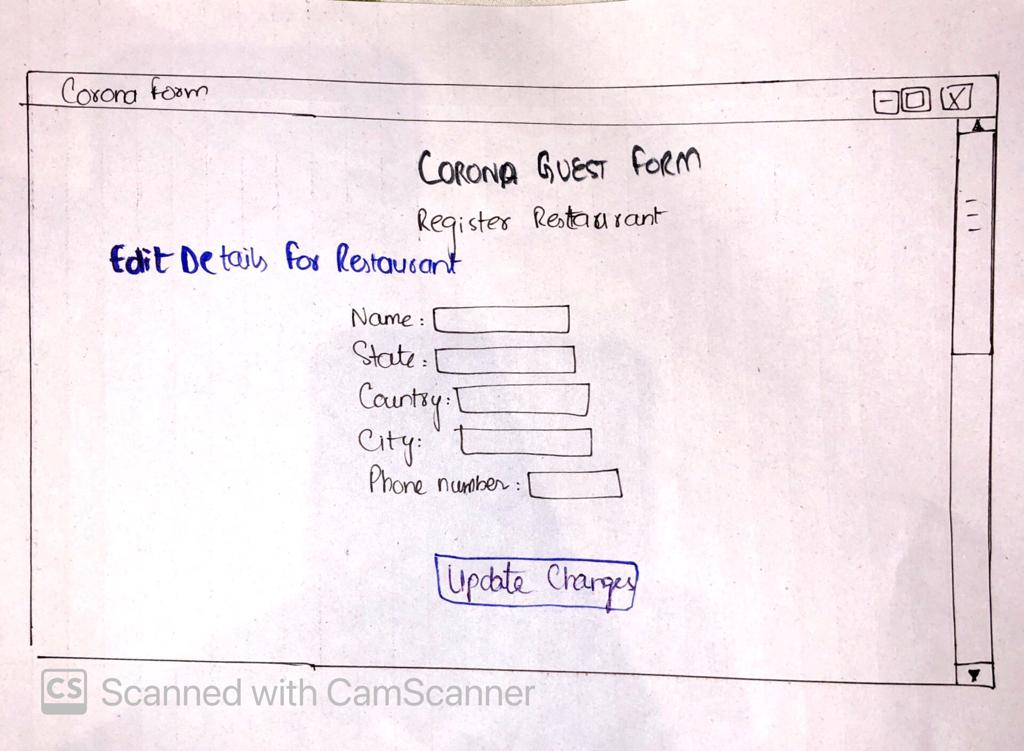 Corona Form
- X
CORONA GUEST FORM
Register Restaurant
Edit Details for Restaurant
Name:
State:
Country:
City:
Phone number:
Update Changes
CS Scanned with CamScanner